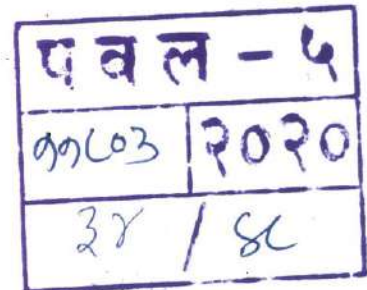 पवल - ५
११८०३ २०२०
३४ / ६८